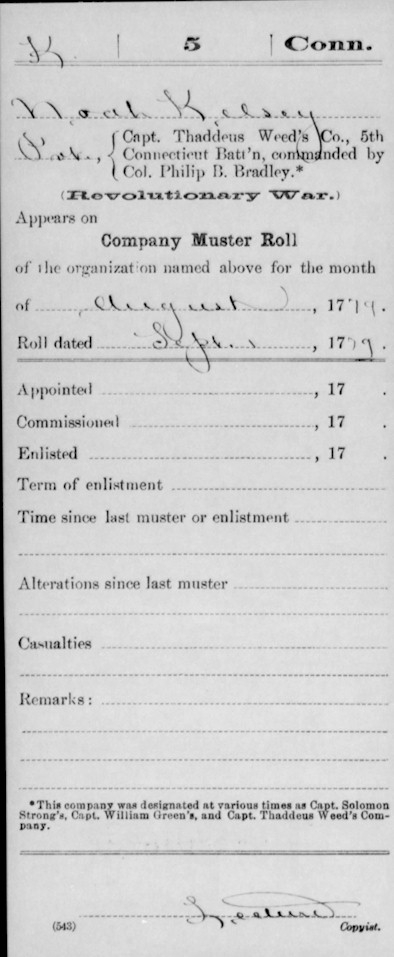 K | 5 | Conn.
Noah Kelsey
Pvt., { Capt. Thaddeus Weed's Co., 5th
Connecticut Batt'n, commanded by
Col. Philip B. Bradley.*
(Revolutionary War.)
Appears on
Company Muster Roll
of the organization named above for the month
of August, 1779.
Roll dated Sept. 1, 1779.
Appointed , 17 .
Commissioned , 17 .
Enlisted , 17 .
Term of enlistment
Time since last muster or enlistment
Alterations since last muster
Casualties
Remarks:
*This company was designated at various times as Capt. Solomon
Strong's, Capt. William Green's, and Capt. Thaddeus Weed's Com-
pany.
(543) Copyist.